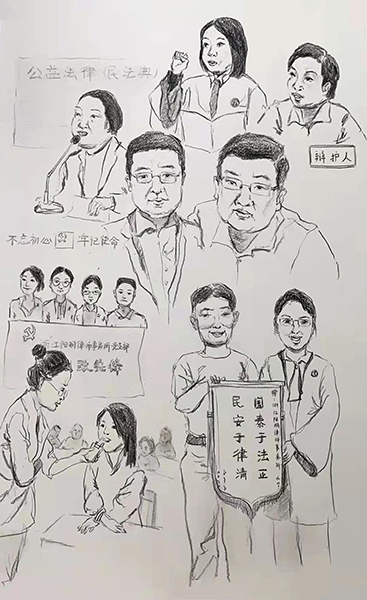 公益法律(民法典)
辩护人
不忘初心 牢记使命
浙江阳明律师事务所党支部
赠:浙江阳明律师事务所
国泰于法正
民安于律清